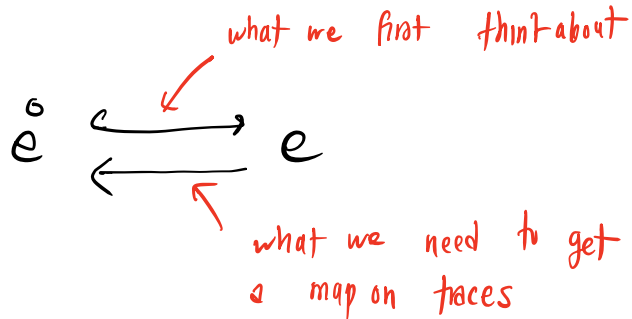 what we first think about
e̊ e
what we need to get
a map on traces